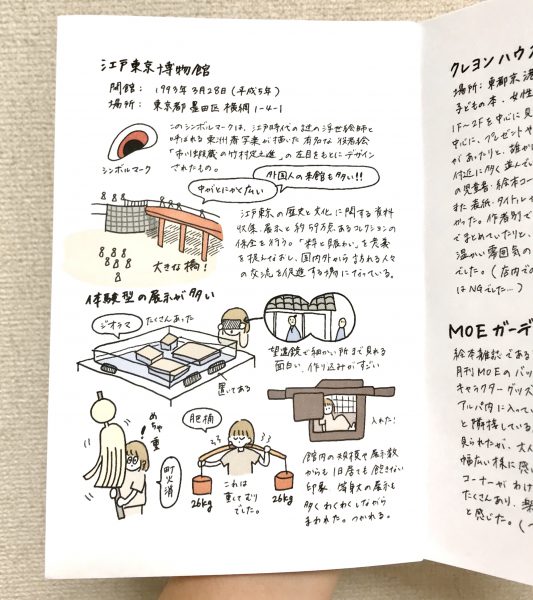 江戸東京博物館
開館： 1993年3月28日(平成5年)
場所： 東京都墨田区横網1-4-1
このシンボルマークは、江戸時代の謎の浮世絵師と
呼ばれる東洲斎写楽が描いた有名な役者絵
「市川鰕蔵の竹村定之進」の左目をもとにデザイン
されたもの。
シンボルマーク
中がとにかくない
外国人の来館も多い!!
大きな橋！
江戸東京の歴史と文化に関する資料
収集、展示と約59万点あるコレクションの
保全を行う。「粋と賑わい」を
を提んなおし、国内外から訪れる人々
の交流を促進する場になっている。
体験型の展示が多い
ジオラマ
たくさんあった
置いてある
望遠鏡で細かい所まで見れる
面白い、作り込みがすごい
めちゃ重
!
町火消
肥桶
26kg
26kg
これは
重くてむり
でした。
入れた！
館内の規模や展示数
からも1日居ても飽きない
印象 等身大の展示も
多くわくわくしながら
まわれた。つかれる。
クレヨンハウス
場所： 東都京港
子どもの本・女性
1F〜2Fを中心に見
中心に、プレゼントや
があったりと、誰か
付近に多く並んでい
の児童書・絵本コー
また表紙・タイトル
かった。作者別で
でまとめていたりと、
温かい雰囲気の
でした。(店内での
はNGでした…)
MOEガーデ
絵本雑誌である
月刊MOEのバッ
キャラクターグッズ
アルパ内に入ってい
と隣接している
見られたが、大人
幅広い様に感い
コーナーがわけ
たくさんあり、楽
と感じた。(